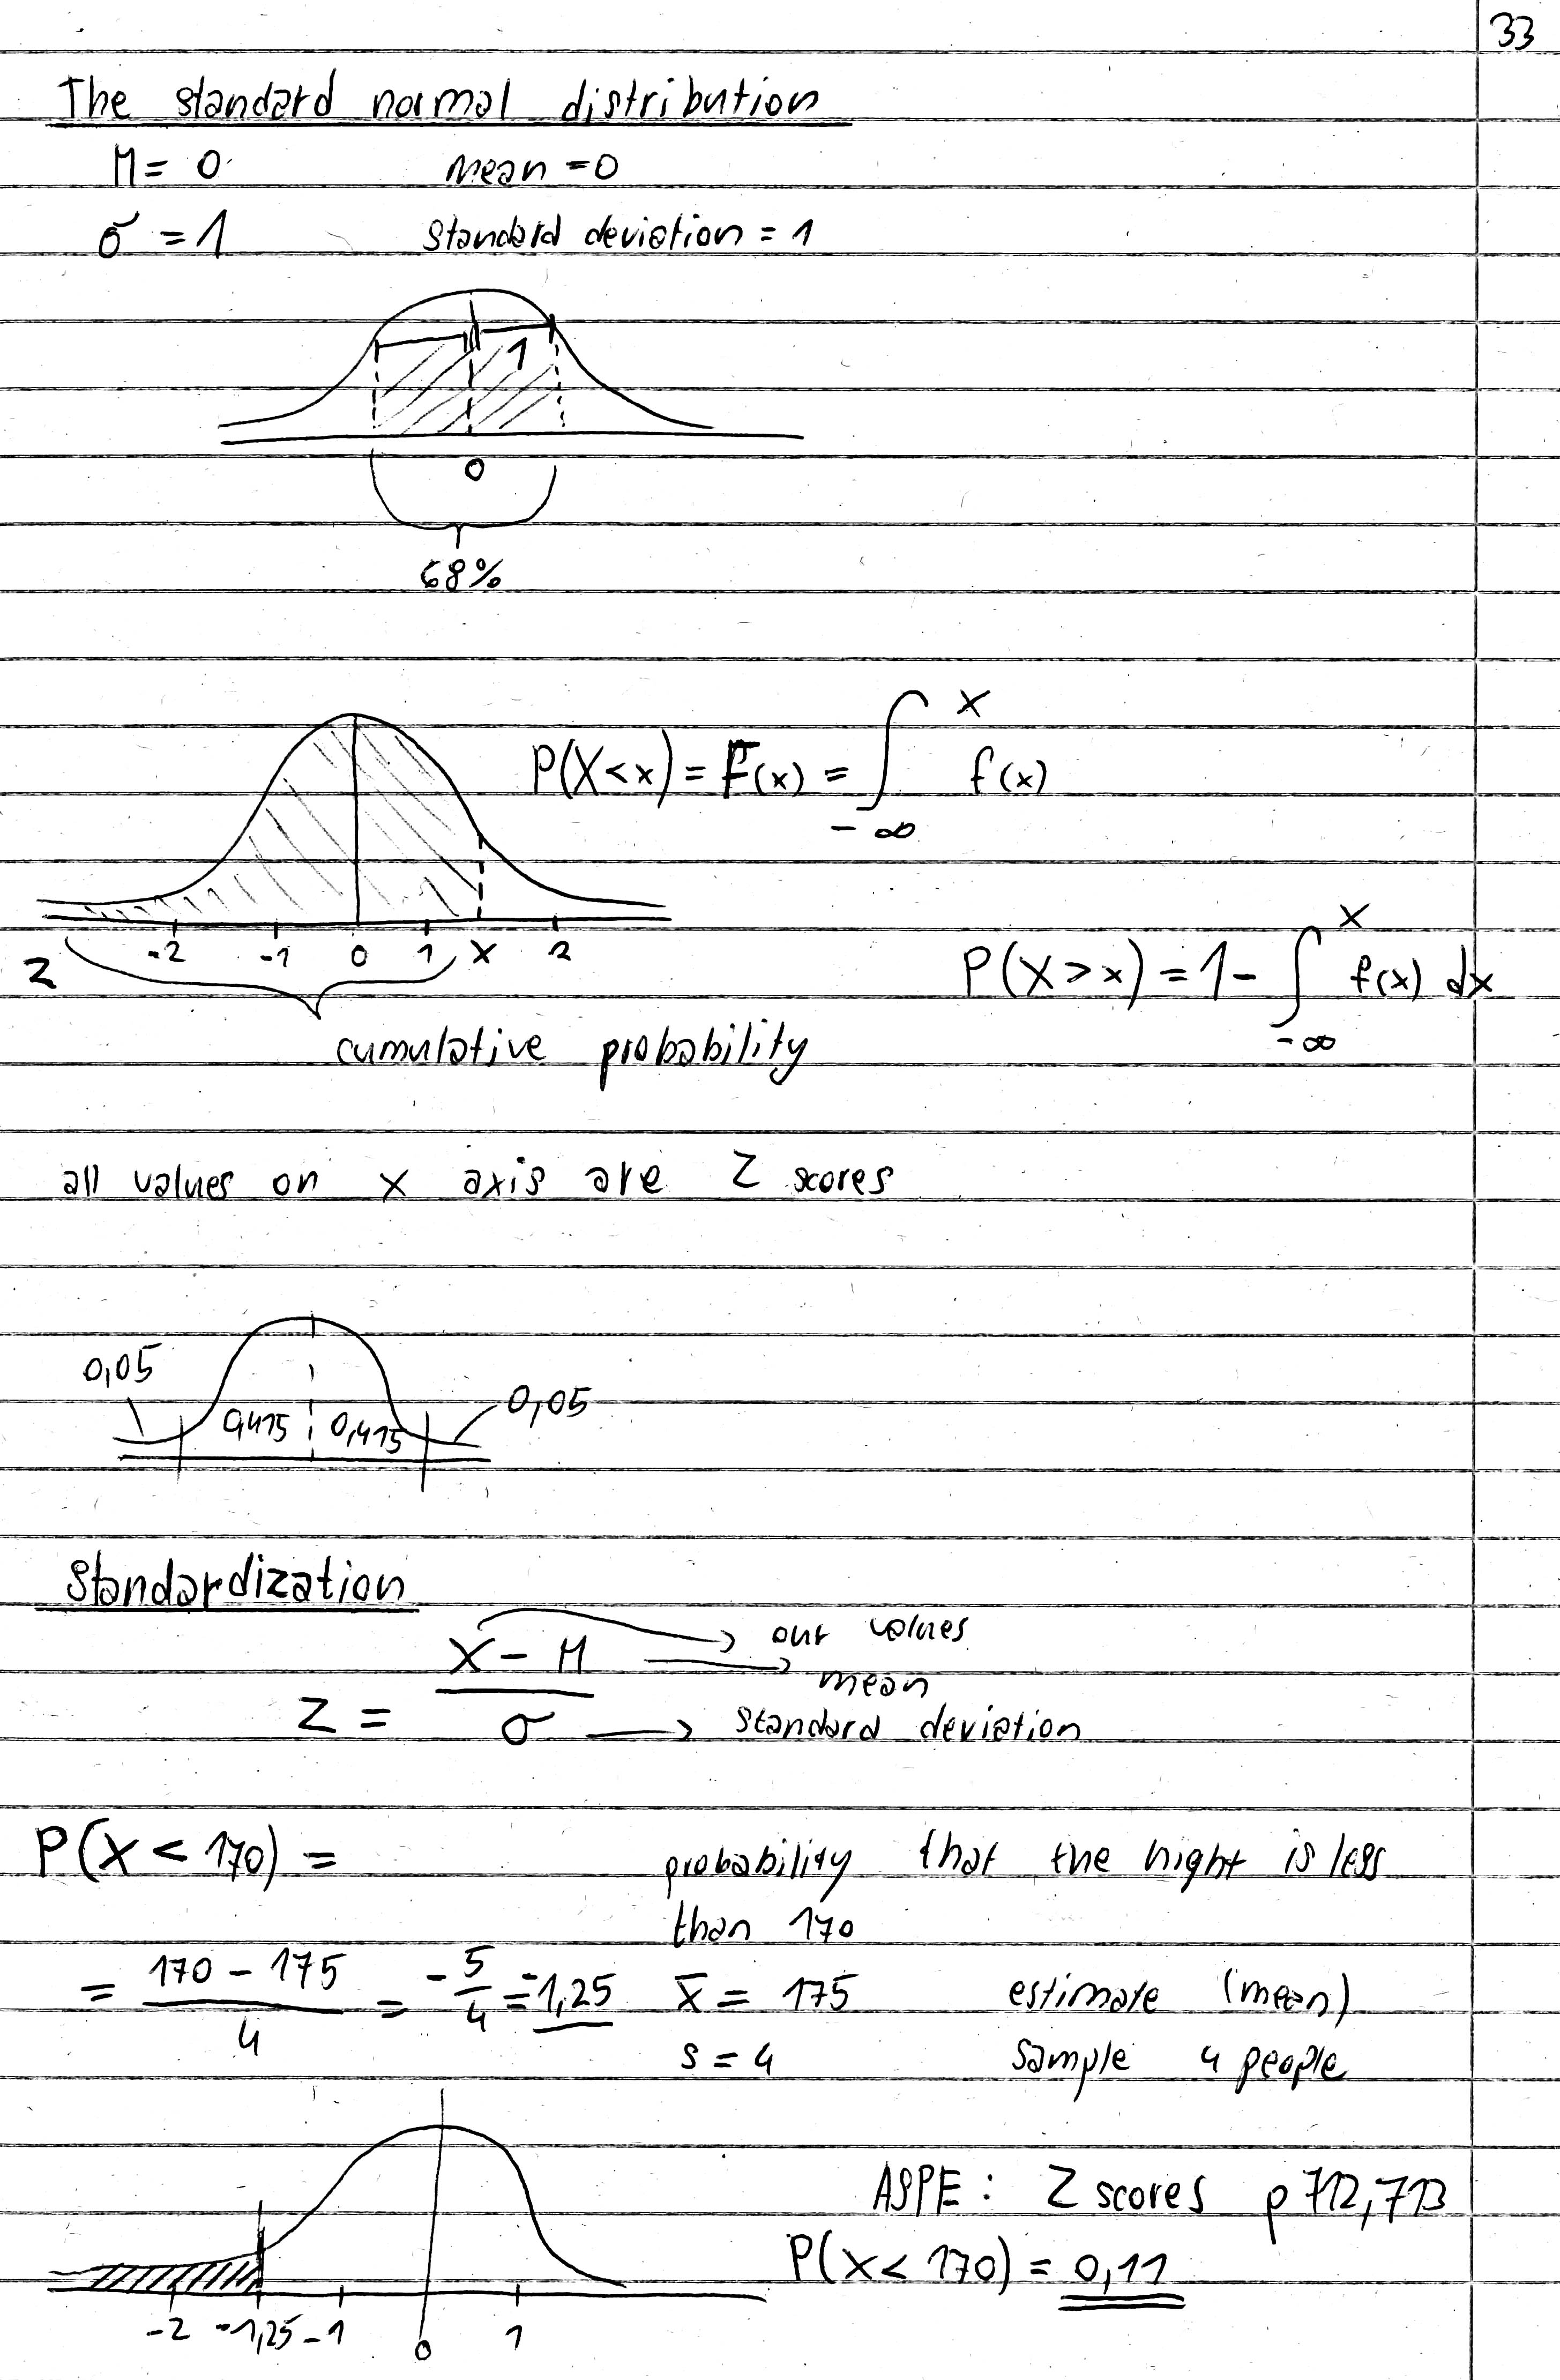 33
The standard normal distribution
M = 0 mean = 0
σ = 1 standard deviation = 1
1
0
68%
P(X < x) = F(x) = ∫ x -∞ f(x)
-2 -1 0 1 x 2
Z
P(X > x) = 1 - ∫ x -∞ f(x) dx
cumulative probability
all values on x axis are Z scores
0,05
0,05
0,475 0,475
Standardization
X - M → our values
→ mean
Z =
σ → standard deviation
P(X < 170) = probability that the hight is less
than 170
= 170 - 175 / 4 = - 5 / 4 = -1,25 x̄ = 175 estimate (mean)
s = 4 sample 4 people
ASPE: Z scores p 712, 713
P(X < 170) = 0,11
-2 -1,25 -1 0 1